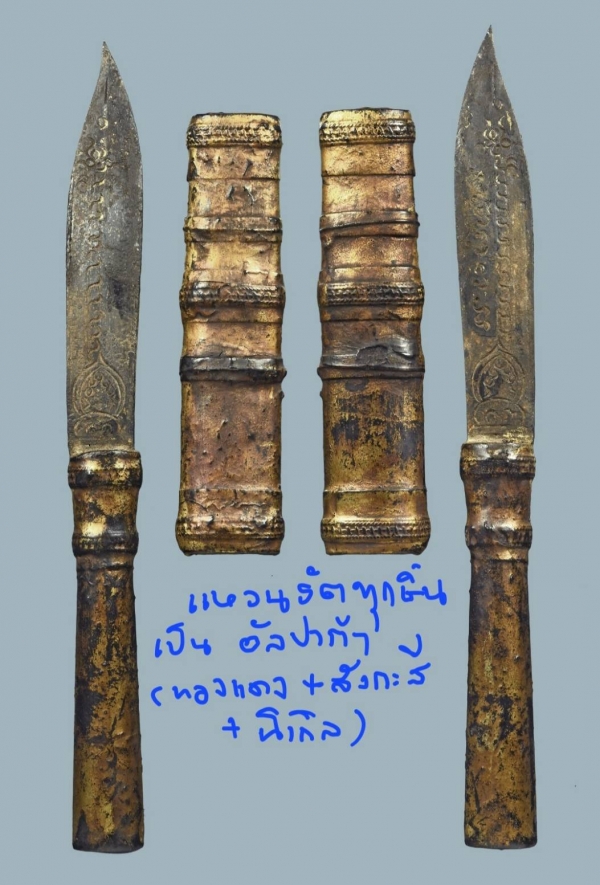 แหวนรัดทุกชิ้น
เป็น อัลปาก้า
(ทองแดง + สังกะสี
+ นิเกิล)